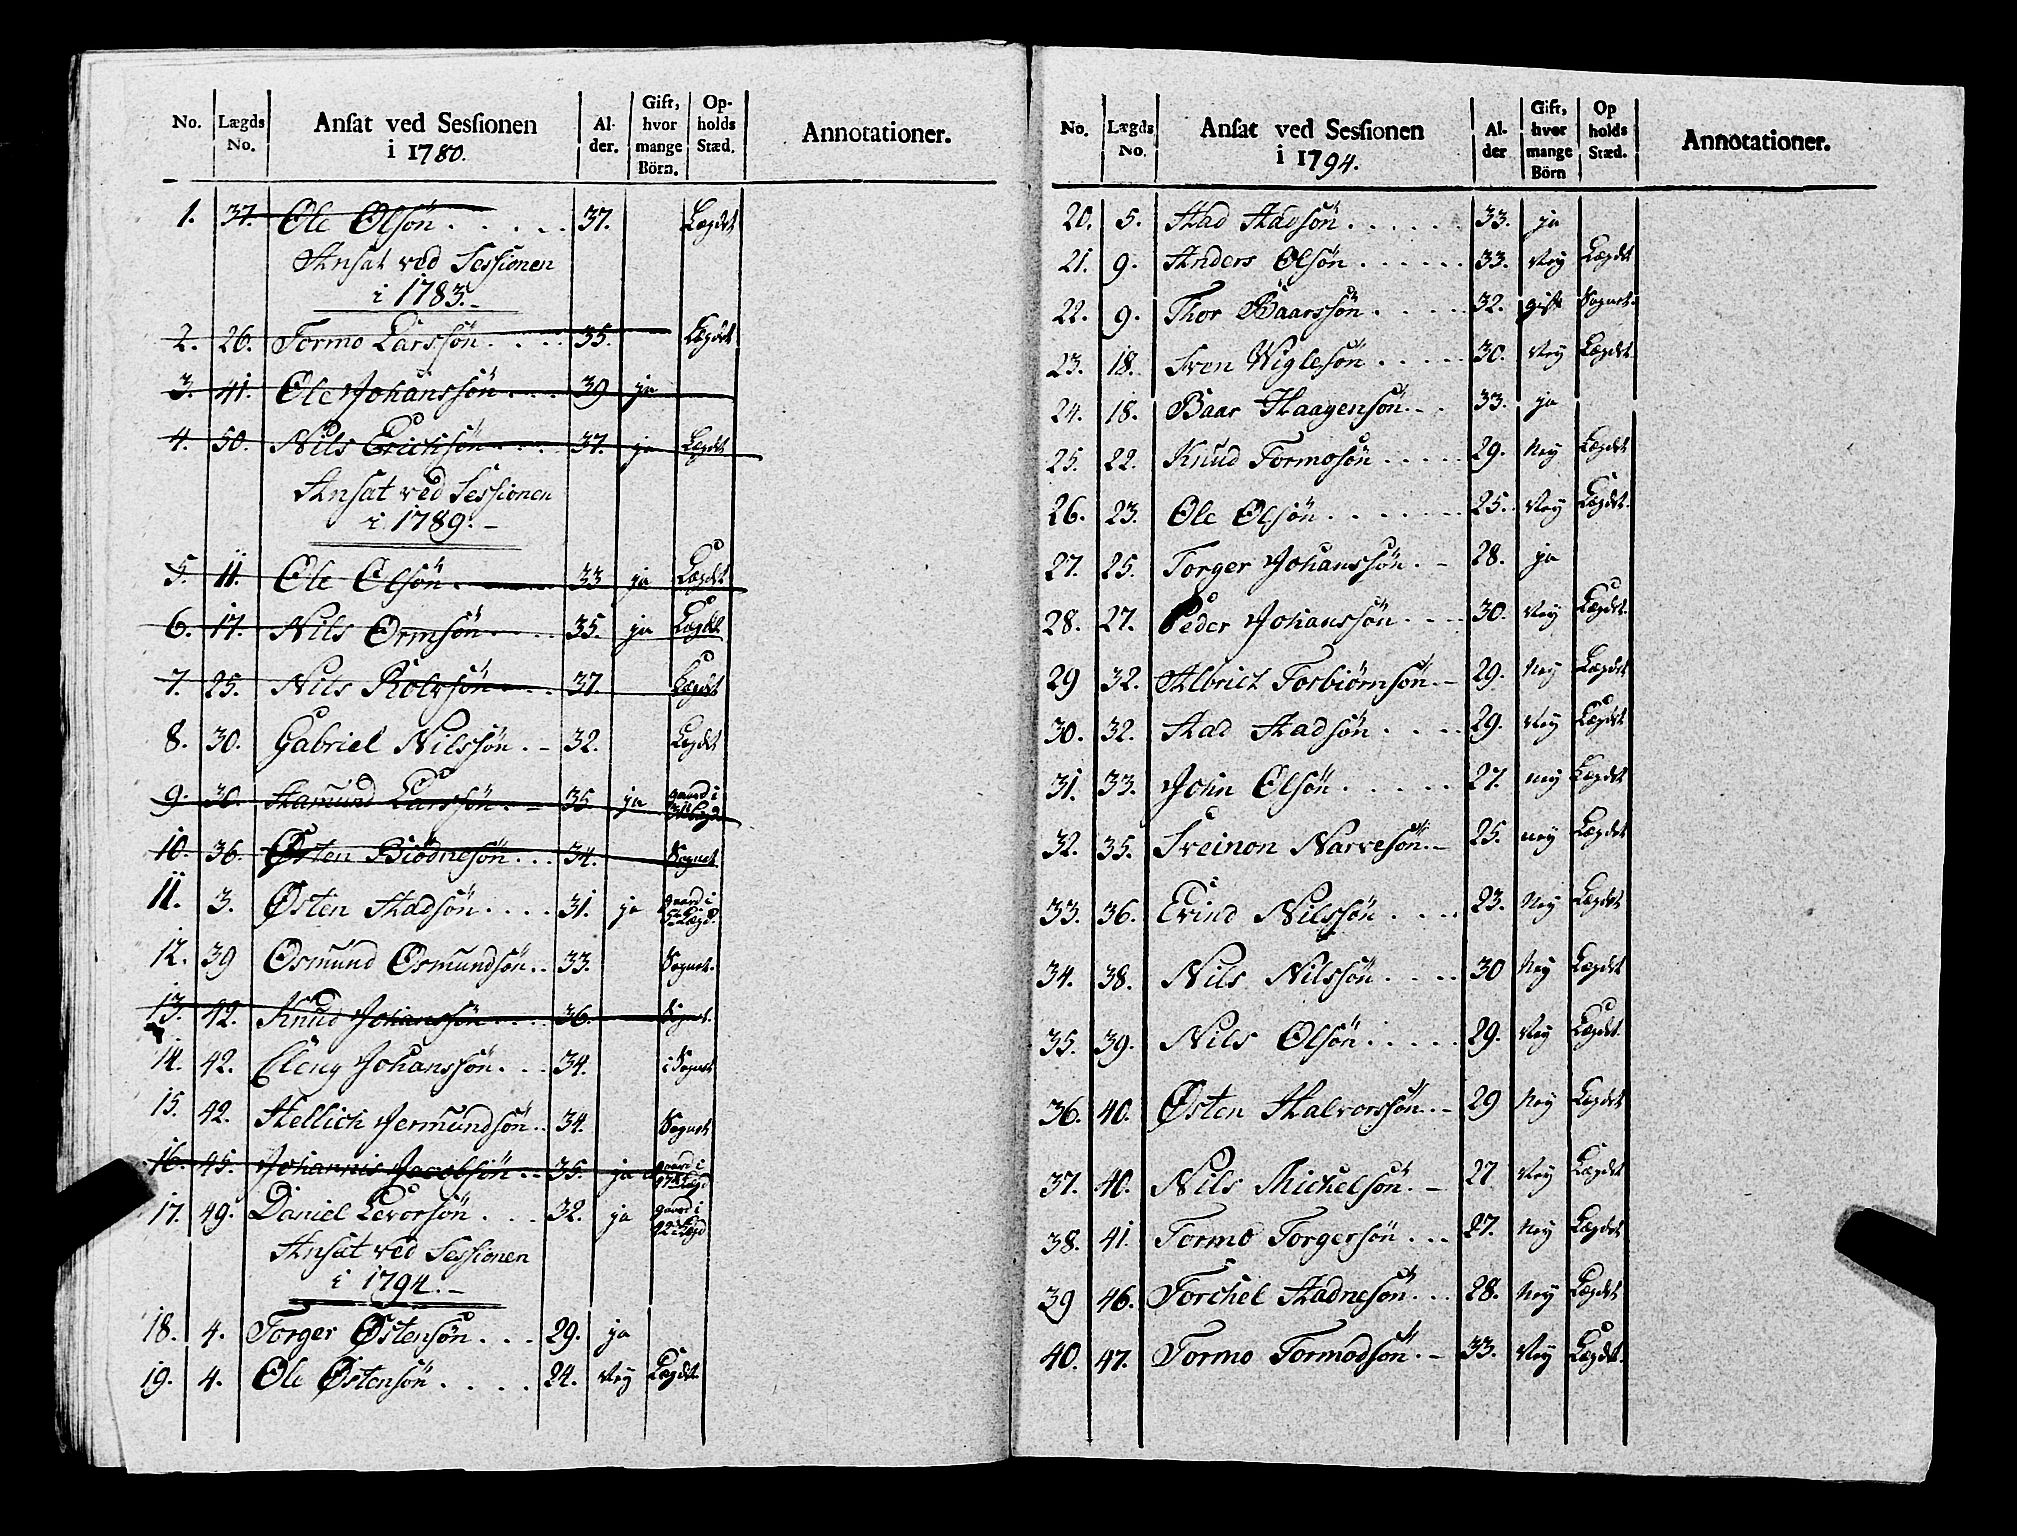 No. Lægds No. Ansat ved Sessionen i 1780. Alder. Gift, hvor mange Börn. Opholds Stæd. Annotationer.
1. 37. Ole Olsön 37. Lægdet
Ansat ved Sessionen
i 1783.
2. 26. Tormo Larssön 35. Lægdet
3. 41. Ole Johanssön 39 ja
4. 50. Nils Erichsön 37. ja Lægdet
Ansat ved Sessionen
i 1789.
5. 11. Ole Olsön 33 ja Lægdet
6. 17. Nils Ormsön 35. ja Lægdet
7. 25. Nils Rolvsön 37. Lægdet
8. 30. Gabriel Nilssön 32. Legdet
9. 30. Aamund Larssön 35 ja gaard i Lægd
10. 36. Østen Biödnesön 34. Sognet
11. 3. Østen Aadsön 31. ja gaard i 52 Lægd.
12. 39 Osmund Osmundsön 33. Sognet.
13. 42. Knud Johanssön 36. Sognet.
14. 42. Eleng Johanssön 34. i Sognet
15. 42. Hellich Jermundsön 34. Sognet
16. 45. Johannis Jacobsön 35. ja gaard i 47 Lægd
17. 49. Daniel Levorsön 32. ja gaard i 42 Lægd
Ansat ved Sessionen
i 1794.
18. 4. Torger Østensön 29. ja
19. 4. Ole Østensön 24. Ney Lægdet
No. Lægds No. Ansat ved Sessionen i 1794. Alder Gift, hvor mange Börn Opholds Stæd. Annotationer.
20. 5. Aad Aadsön 33. ja
21. 9. Anders Olsön 33. Ney Lægdet
22. 9. Thor Baarssön 32. gift Sognet
23. 18. Sven Viglesön 30. Ney Lægdet
24. 18. Baar Haagensön 33. ja
25. 22. Knud Tormosön 29. Ney Lægdet
26. 23. Ole Olsön 25. Ney Lægdet.
27. 25. Torger Johanssön 28. ja
28. 27. Peder Johanssön 30. Ney Lægdet.
29 32. Albrict Torbiörnsön 29. Ney Lægdet
30. 32. Aad Aadsön 29. Ney Lægdet
31. 33. John Olsön 27. ney Lægdet
32. 35. Sveinon Narvesön 25. ney Lægdet
33. 36. Evind Nilssön 23. Ney Lægdet
34. 38. Nils Nilssön 30 Ney Lægdet
35. 39. Nils Olsön 29. Ney Lægdet.
36. 40. Østen Halvorssön 29 Ney Lægdet
37. 40. Nils Michelsön 27 Ney Lægdet
38. 41. Tormo Torgersön 27. Ney Lægdet
39 46. Torchel Aadnesön 28. Ney Lægdet
40. 47. Tormo Tormodsön 33. Ney Lægdet.